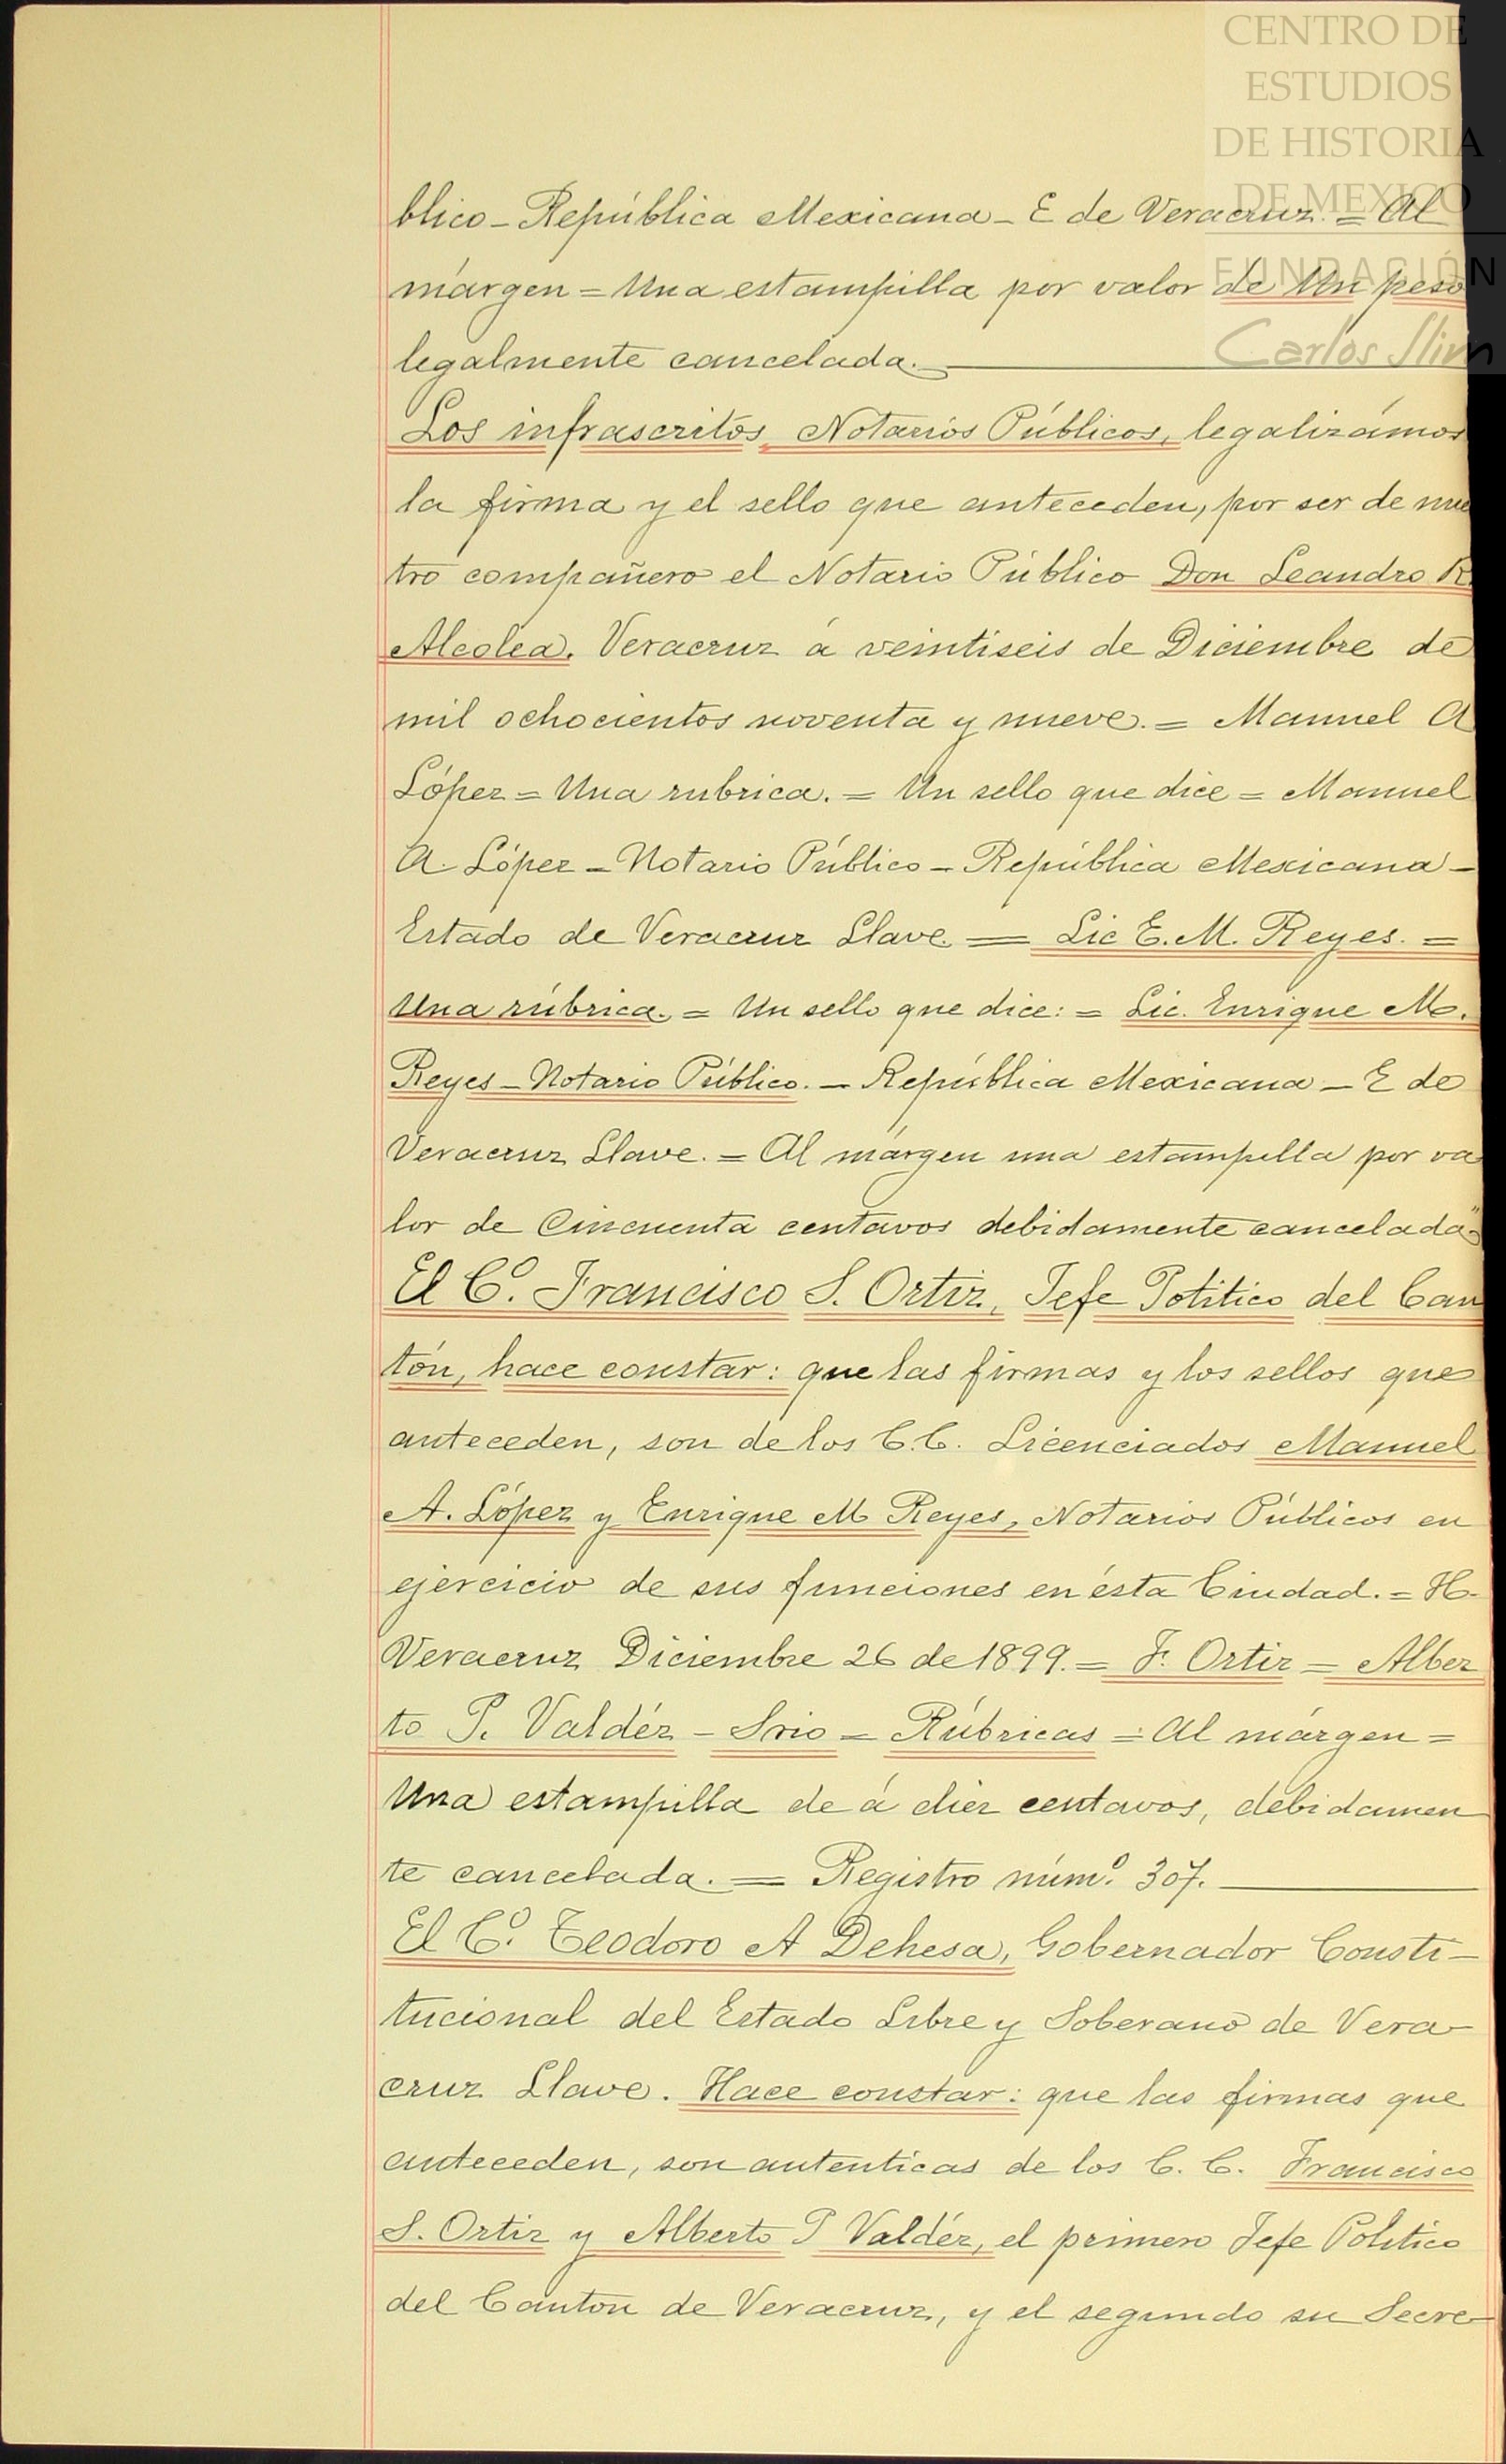 CENTRO DE
ESTUDIOS
DE HISTORIA
DE MEXICO
FUNDACIÓN
Carlos Slim
blico – República Mexicana – E de Veracruz. = Al
márgen = Una estampilla por valor de Un peso
legalmente cancelada.
Los infrascritos, Notarios Públicos, legalizámos
la firma y el sello que anteceden, por ser de nue
tro compañero el Notario Público Don Leandro R.
Alcolea. Veracruz á veintiseis de Diciembre de
mil ochocientos noventa y nueve. = Manuel A
López = Una rubrica. = Un sello que dice = Manuel
A. López – Notario Público – República Mexicana –
Estado de Veracruz Llave. = Lic E. M. Reyes. =
Una rúbrica. = Un sello que dice: = Lic. Enrique M.
Reyes – Notario Público. – República Mexicana – E de
Veracruz Llave. = Al márgen una estampilla por va
lor de Cincuenta centavos debidamente cancelada"
El C.º Francisco S. Ortiz, Jefe Politico del Can
tón, hace constar: que las firmas y los sellos que
anteceden, son de los C.C. Licenciados Manuel
A. López y Enrique M Reyes, Notarios Públicos en
ejercicio de sus funciones en ésta Ciudad. = H.
Veracruz Diciembre 26 de 1899. = F. Ortiz = Alber
to P. Valdéz – Srio = Rúbricas = Al márgen =
Una estampilla de á diez centavos, debidamen
te cancelada. = Registro núm.º 307.
El C.º Teodoro A Dehesa, Gobernador Consti–
tucional del Estado Libre y Soberano de Vera–
cruz Llave. Hace constar: que las firmas que
anteceden, son autenticas de los C. C. Francisco
S. Ortiz y Alberto P Valdéz, el primero Jefe Politico
del Canton de Veracruz, y el segundo su Secre–